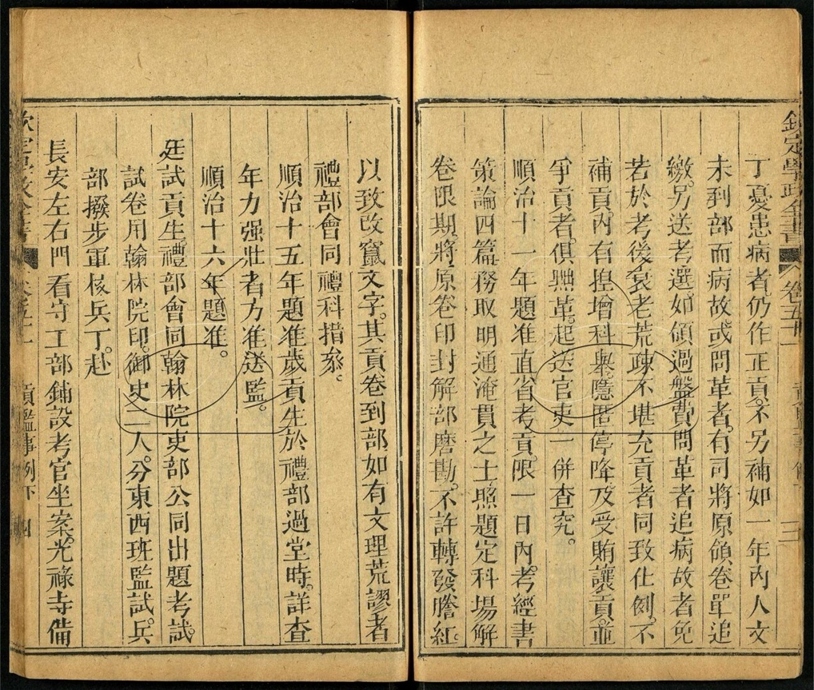 欽定學政全書 卷五十一
丁憂患病者仍作正貢不另補如一年內人文
未到部而病故或問革者有司將原領卷單追
繳另送考選如領過盤費問革者追病故者免
若於考後衰老荒疎不堪充貢者同致仕例不
補貢內有捏增科舉隱匿停降及受賄讓貢並
爭貢者俱黜革起送官吏一併查究。
順治十一年題准直省考貢限一日內考經書
策論四篇務取明通淹貫之士照題定科場解
卷限期將原卷印封解部磨勘不許轉發謄紅
以致改竄文字其貢卷到部如有文理荒謬者
禮部會同禮科指參。
順治十五年題准歲貢生於禮部過堂時詳查
年力强壯者方准送監。
順治十六年題准。
廷試貢生禮部會同翰林院吏部公同出題考試
試卷用翰林院印御史二人分東西班監試兵
部撥步軍校兵丁赴
長安左右門看守工部鋪設考官坐案光祿寺備
貢監事例下 四